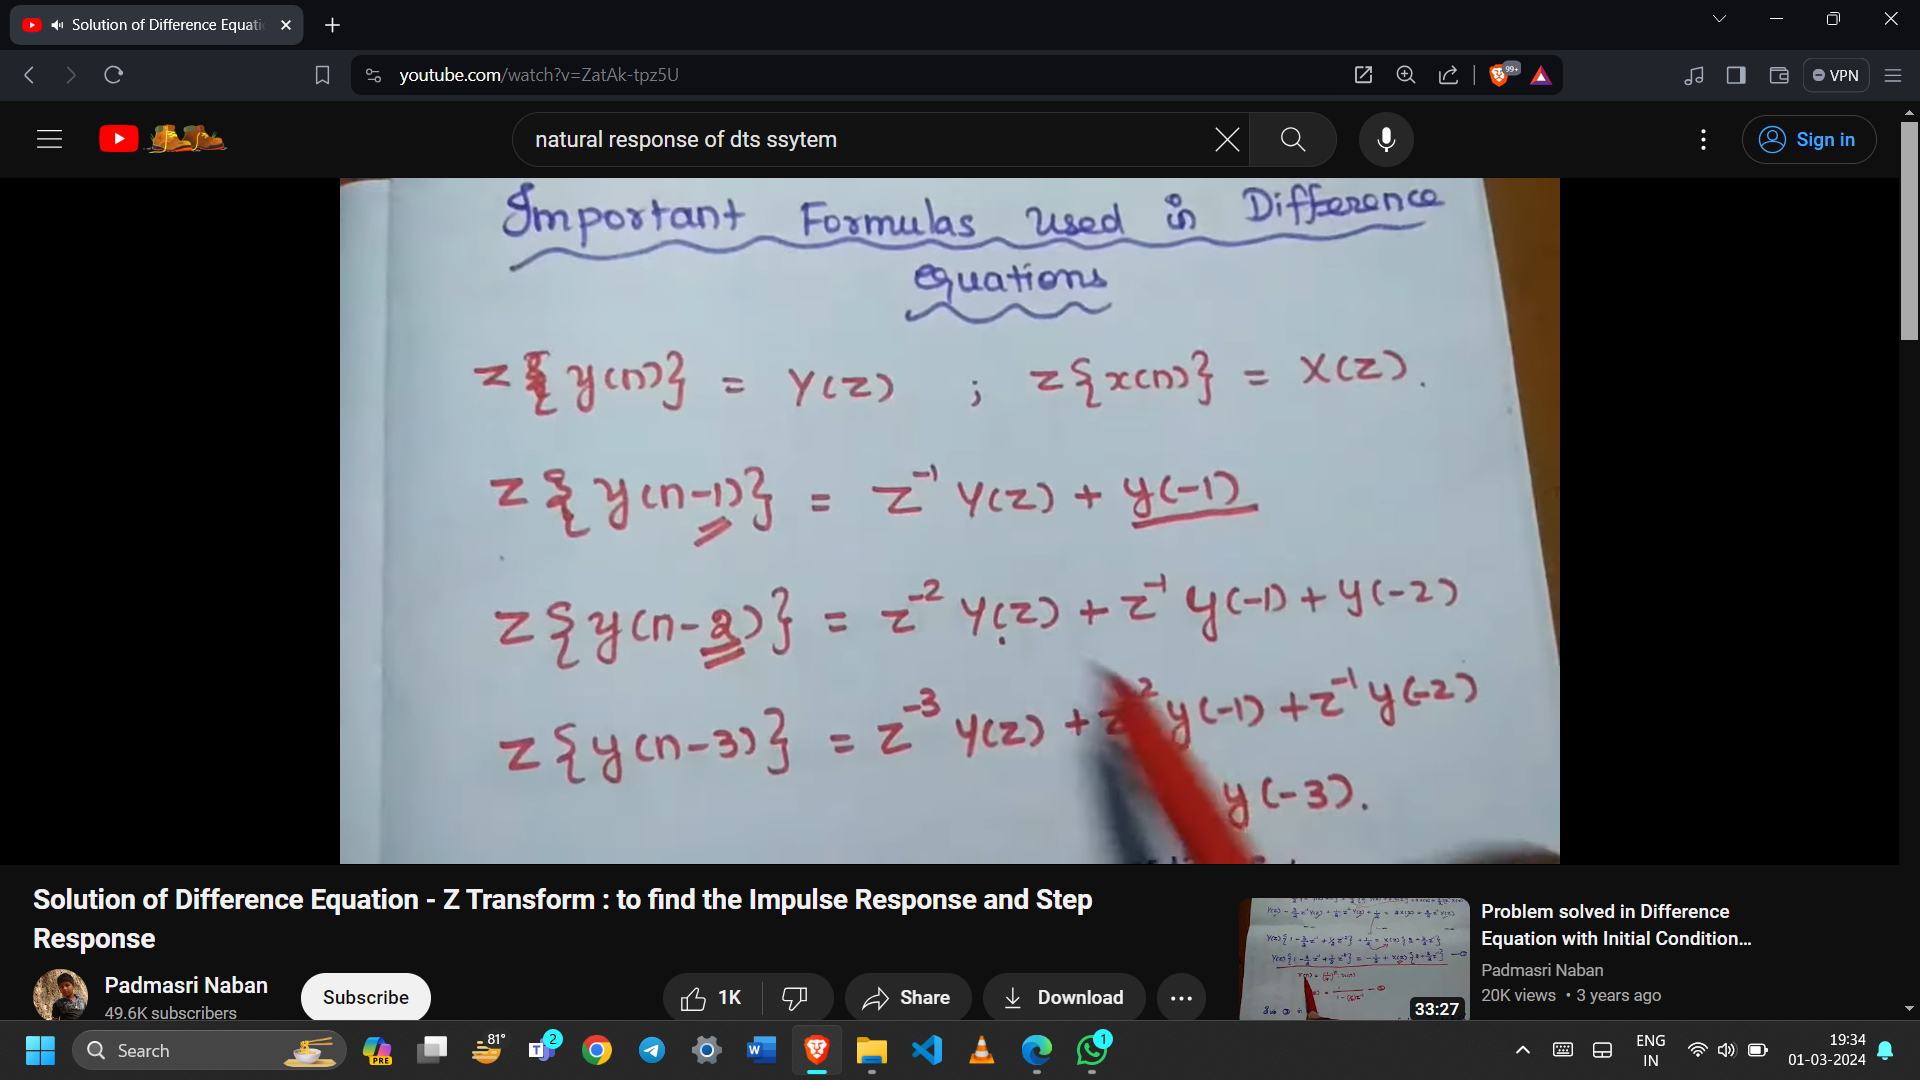 Solution of Difference Equati
youtube.com/watch?v=ZatAk-tpz5U
99+
VPN
natural response of dts ssytem
Sign in
Important Formulas used in Difference
Equations
Z{y(n)} = Y(Z) ; Z{x(n)} = X(Z).
Z{y(n-1)} = Z⁻¹ Y(Z) + y(-1)
Z{y(n-2)} = Z⁻² Y(Z) + Z⁻¹ y(-1) + y(-2)
Z{y(n-3)} = Z⁻³ Y(Z) + Z⁻² y(-1) + Z⁻¹ y(-2)
y(-3).
Solution of Difference Equation - Z Transform : to find the Impulse Response and Step
Response
Padmasri Naban
49.6K subscribers
Subscribe
1K
Share
Download
33:27
Problem solved in Difference
Equation with Initial Condition...
Padmasri Naban
20K views • 3 years ago
Search
PRE
81°
2
1
ENG
IN
19:34
01-03-2024